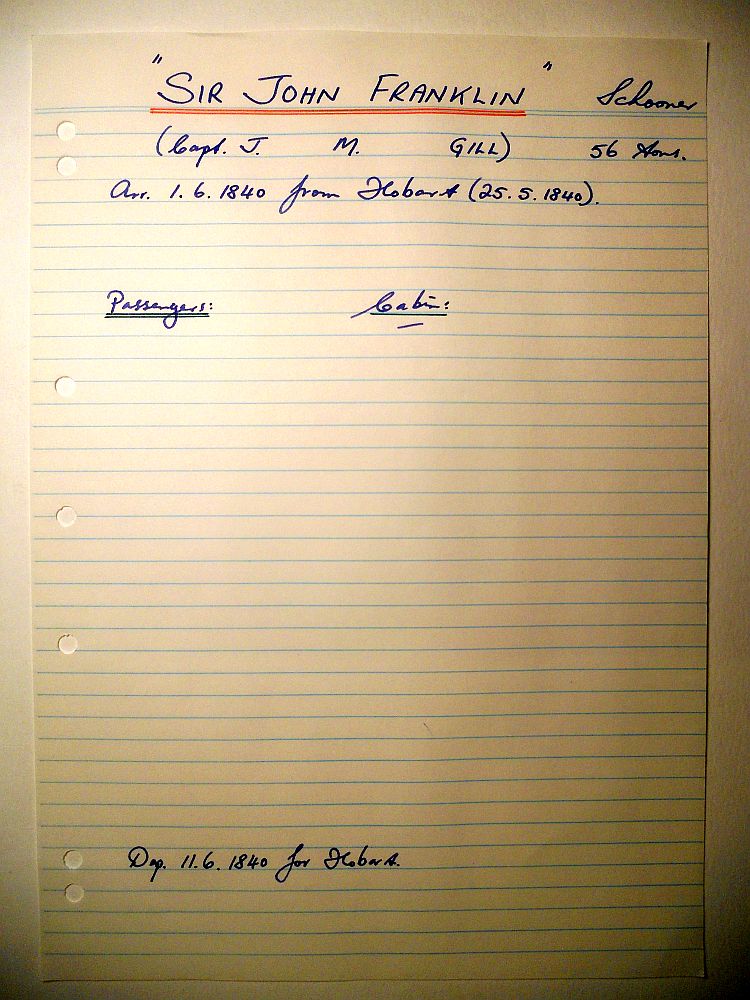 "SIR JOHN FRANKLIN" Schooner
(Capt. J. M. GILL) 56 tons.
Arr. 1.6.1840 from Hobart (25.5.1840).
Passengers: Cabin:
Dep. 11.6.1840 for Hobart.